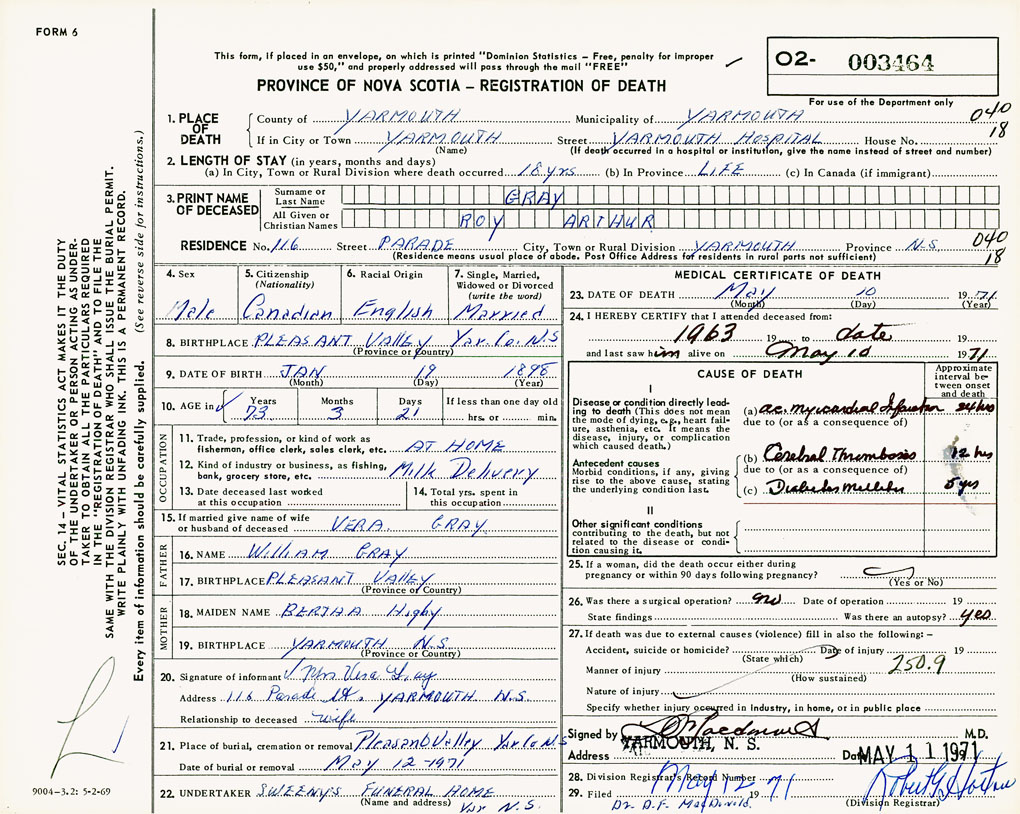 FORM 6
This form, if placed in an envelope, on which is printed "Dominion Statistics – Free, penalty for improper
use $50," and properly addressed will pass through the mail "FREE"
O2- 003464
PROVINCE OF NOVA SCOTIA – REGISTRATION OF DEATH
For use of the Department only
040
18
1. PLACE OF DEATH
County of YARMOUTH Municipality of YARMOUTH
If in City or Town YARMOUTH Street YARMOUTH HOSPITAL House No.
(Name) (If death occurred in a hospital or institution, give the name instead of street and number)
2. LENGTH OF STAY (in years, months and days)
(a) In City, Town or Rural Division where death occurred 18 yrs (b) In Province LIFE (c) In Canada (if immigrant)
3. PRINT NAME OF DECEASED
Surname or Last Name GRAY
All Given or Christian Names ROY ARTHUR
RESIDENCE No. 116 Street PARADE City, Town or Rural Division YARMOUTH Province N.S. 040
(Residence means usual place of abode. Post Office Address for residents in rural parts not sufficient) 18
4. Sex
Male
5. Citizenship (Nationality)
Canadian
6. Racial Origin
English
7. Single, Married, Widowed or Divorced (write the word)
Married
8. BIRTHPLACE PLEASANT Valley Yar. Co. N.S
(Province or Country)
9. DATE OF BIRTH JAN 19 1898
(Month) (Day) (Year)
10. AGE in Years 73 Months 3 Days 21 If less than one day old
hrs. or min.
OCCUPATION
11. Trade, profession, or kind of work as
fisherman, office clerk, sales clerk, etc. AT HOME
12. Kind of industry or business, as fishing,
bank, grocery store, etc. Milk Delivery
13. Date deceased last worked
at this occupation
14. Total yrs. spent in
this occupation
15. If married give name of wife
or husband of deceased VERA GRAY
FATHER
16. NAME William GRAY
17. BIRTHPLACE PLEASANT Valley
(Province or Country)
MOTHER
18. MAIDEN NAME BERTHA Higby
19. BIRTHPLACE YARMOUTH N.S.
(Province or Country)
20. Signature of informant Mrs Vera Gray
Address 116 Parade St. YARMOUTH N.S.
Relationship to deceased wife
21. Place of burial, cremation or removal Pleasant Valley Yar Co N.S
Date of burial or removal May 12-1971
22. UNDERTAKER SWEENY'S FUNERAL HOME
(Name and address) Yar N.S.
MEDICAL CERTIFICATE OF DEATH
23. DATE OF DEATH May 10 1971
(Month) (Day) (Year)
24. I HEREBY CERTIFY that I attended deceased from:
1963 19 to date 19
and last saw him alive on May 10 1971
CAUSE OF DEATH
Approximate interval between onset and death
I
Disease or condition directly leading to death (This does not mean the mode of dying, e.g., heart failure, asthenia, etc. It means the disease, injury, or complication which caused death.)
(a) ac. myocardial Infarction 24 hrs
due to (or as a consequence of)
Antecedent causes
Morbid conditions, if any, giving rise to the above cause, stating the underlying condition last.
(b) Cerebral Thrombosis 12 hrs
due to (or as a consequence of)
(c) Diabetes Mellitus 5 yrs
II
Other significant conditions
contributing to the death, but not
related to the disease or condition causing it.
25. If a woman, did the death occur either during
pregnancy or within 90 days following pregnancy?
(Yes or No)
26. Was there a surgical operation? no Date of operation 19
State findings Was there an autopsy? yes
27. If death was due to external causes (violence) fill in also the following: –
Accident, suicide or homicide? Date of injury 19
(State which)
Manner of injury 250.9
(How sustained)
Nature of injury
Specify whether injury occurred in industry, in home, or in public place
Signed by M.D.
Address YARMOUTH, N. S. Date MAY 11 1971
28. Division Registrar's Record Number
29. Filed May 12 1971
Dr. D.F. MacDonald (Division Registrar)
SEC. 14 – VITAL STATISTICS ACT MAKES IT THE DUTY
OF THE UNDERTAKER OR PERSON ACTING AS UNDER-
TAKER TO OBTAIN ALL THE PARTICULARS REQUIRED
IN THE "REGISTRATION OF DEATH" AND TO FILE THE
SAME WITH THE DIVISION REGISTRAR WHO SHALL ISSUE THE BURIAL PERMIT.
WRITE PLAINLY WITH UNFADING INK. THIS IS A PERMANENT RECORD.
Every item of information should be carefully supplied. (See reverse side for instructions.)
9004-3.2: 5-2-69